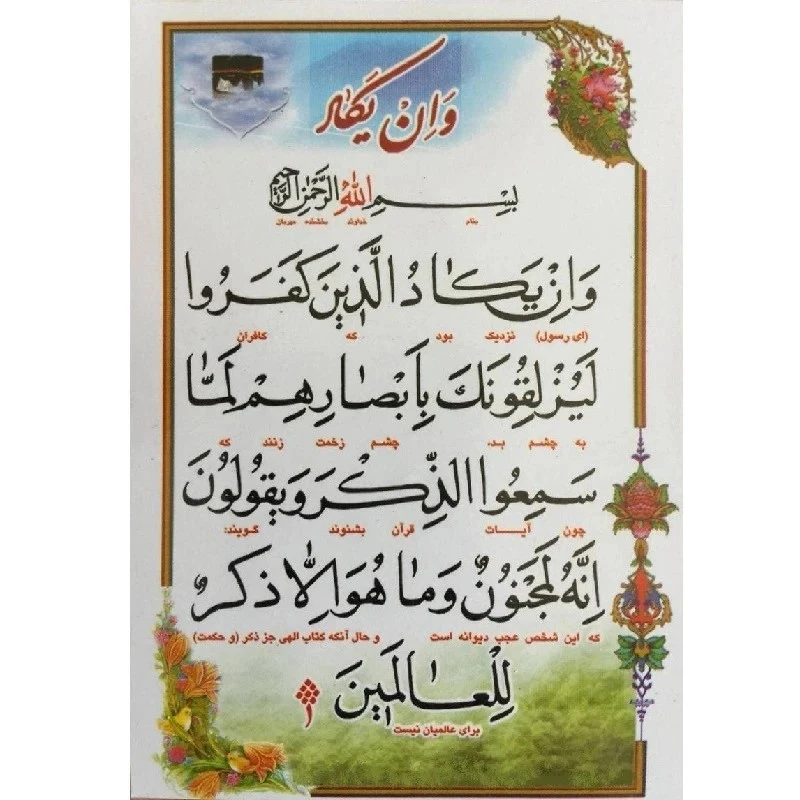 وَاِنْ یَکاد
بِسْمِ اللهِ الرَّحْمٰنِ الرَّحیمِ
بنام خداوند بخشنده مهربان
وَاِنْ یَکادُ الَّذینَ کَفَرُوا
(ای رسول) نزدیک بود که کافران
لَیُزْلِقُونَكَ بِاَبْصارِهِمْ لَمّا
به چشم بد، چشم زخمت زنند که
سَمِعُوا الذِّکْرَ وَیَقُولُونَ
چون آیات قرآن بشنوند گویند:
اِنَّهُ لَمَجْنُونٌ وَما هُوَ اِلّا ذِکْرٌ
که این شخص عجب دیوانه است و حال آنکه کتاب الهی جز ذکر (و حکمت)
لِلْعالَمینَ
برای عالمیان نیست